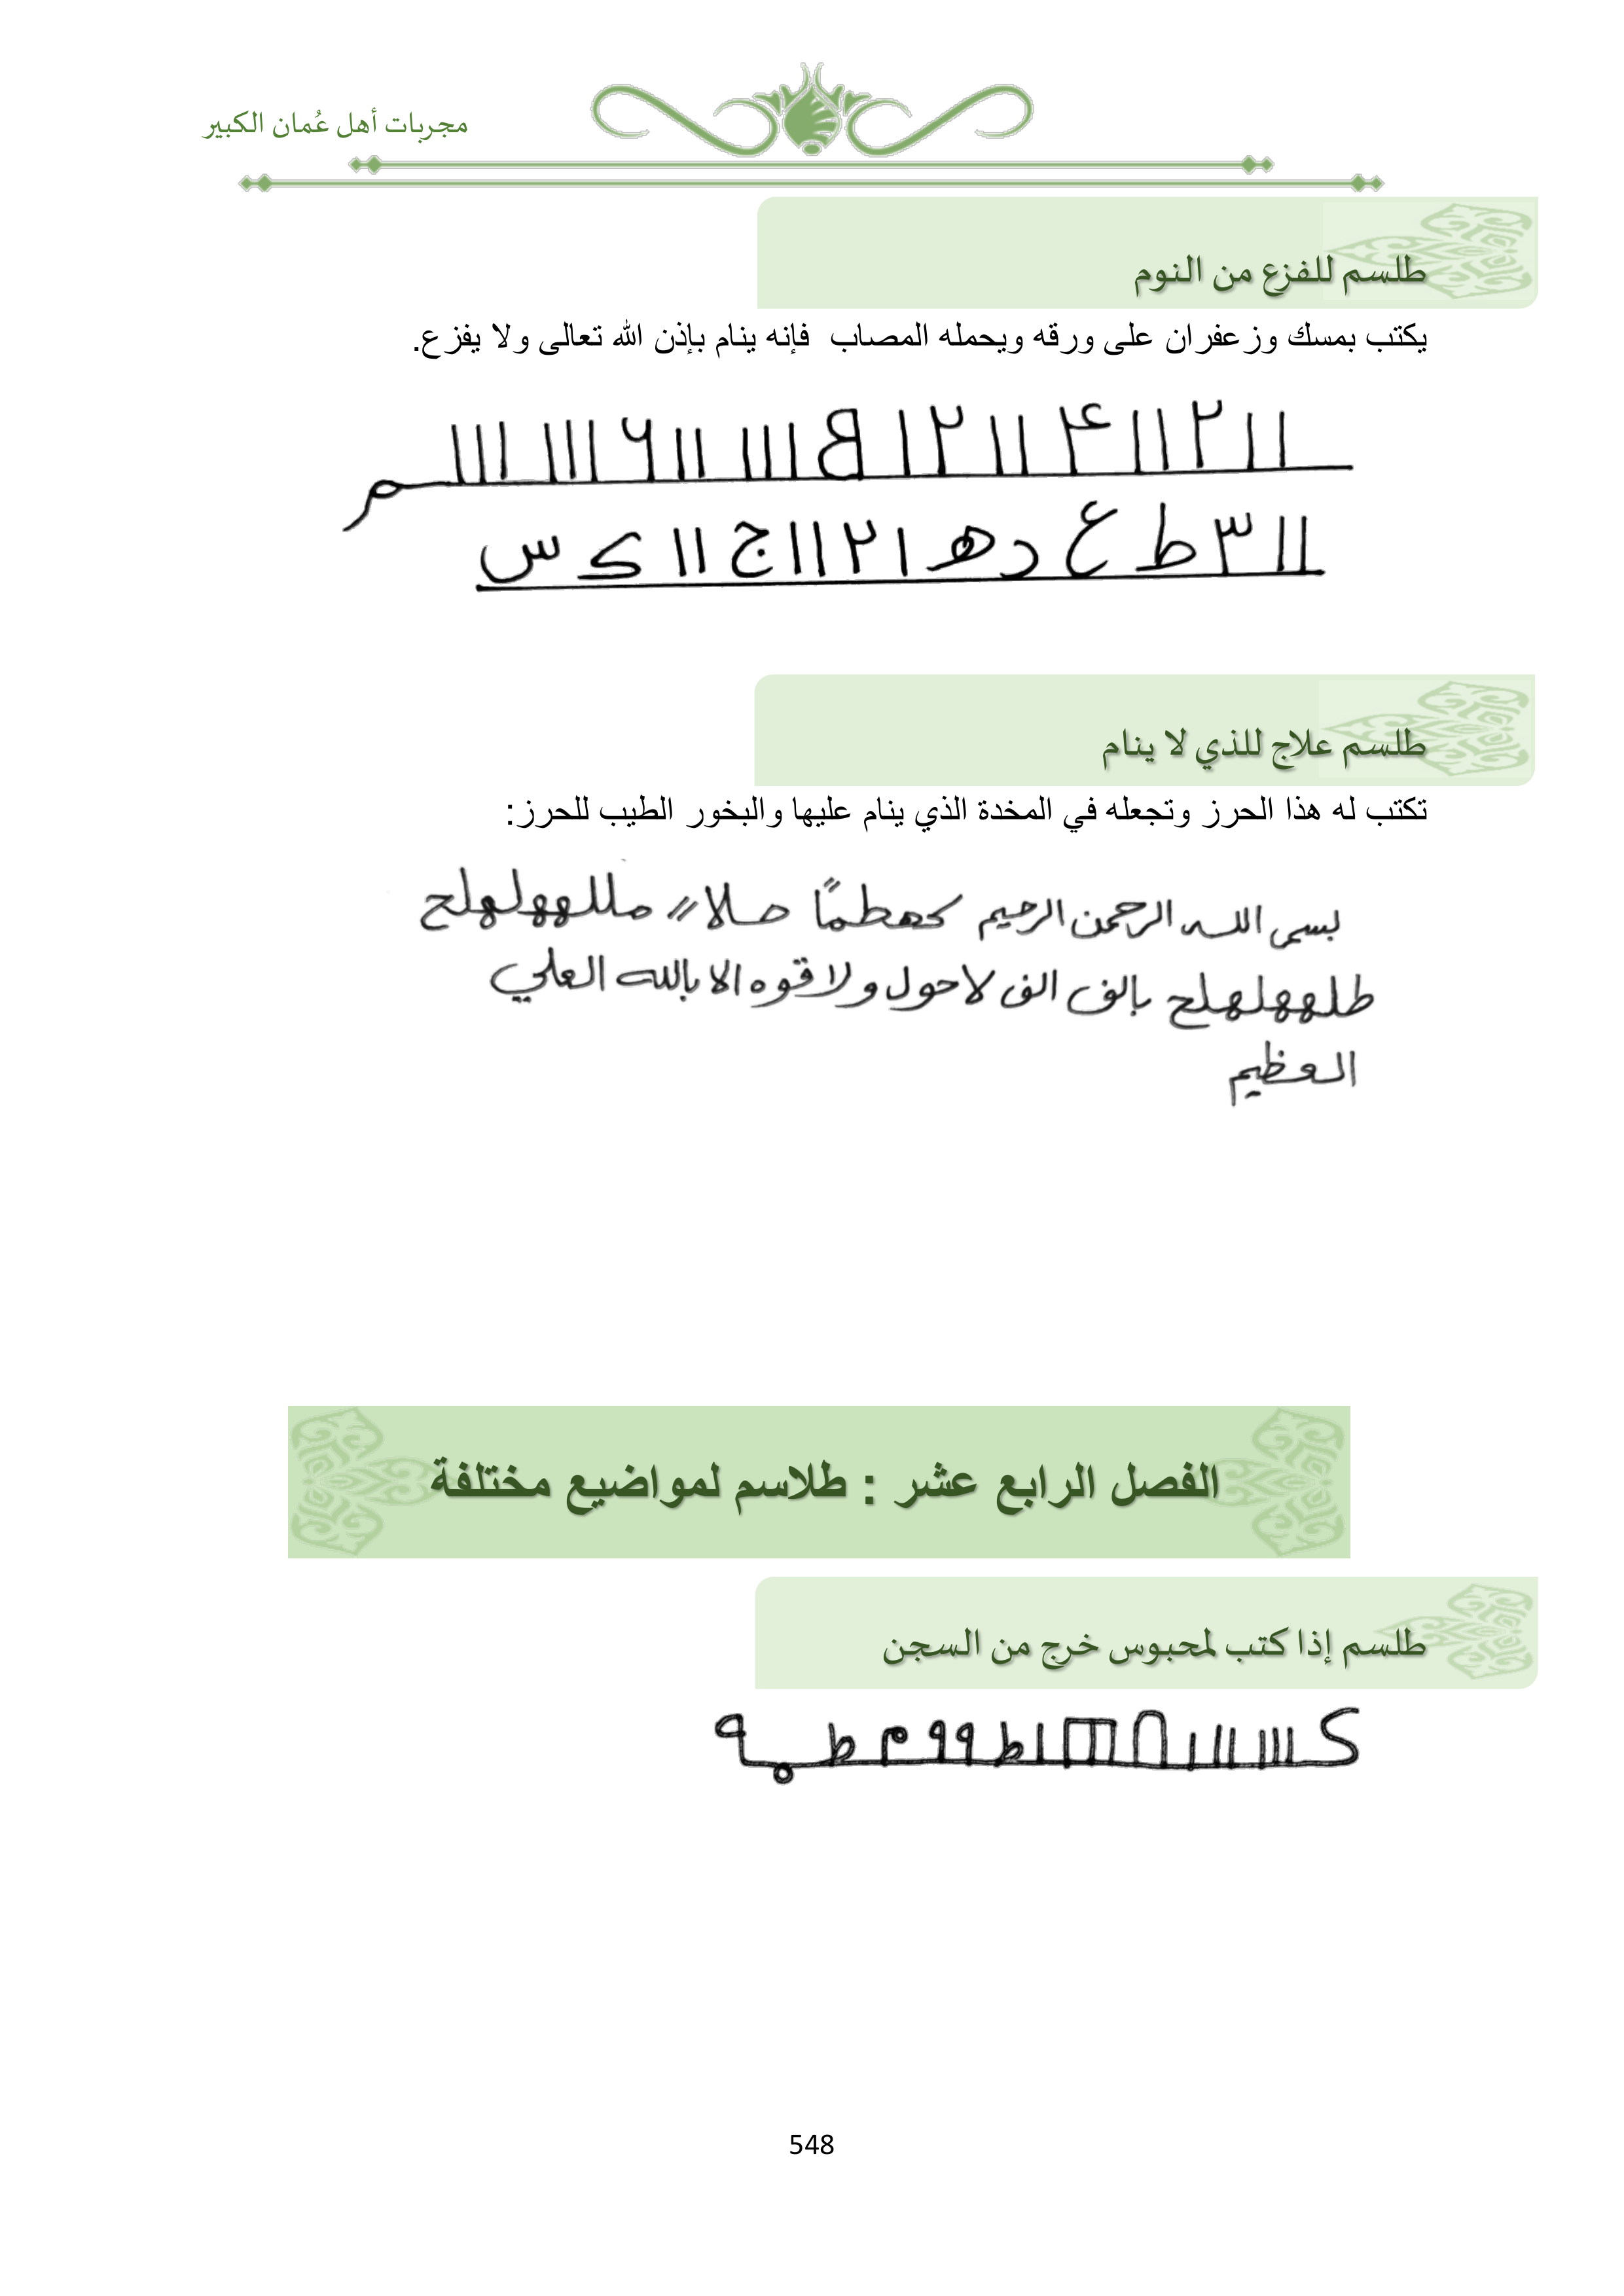 مجربات أهل عُمان الكبير
طلسم للفزع من النوم
يكتب بمسك وزعفران على ورقه ويحمله المصاب فإنه ينام بإذن الله تعالى ولا يفزع.
طلسم علاج للذي لا ينام
تكتب له هذا الحرز وتجعله في المخدة الذي ينام عليها والبخور الطيب للحرز:
الرحمن الرحيم
بالف الف لاحول ولا قوه الا بالله العلي
العظيم
الفصل الرابع عشر : طلاسم لمواضيع مختلفة
طلسم إذا كتب لمحبوس خرج من السجن
548